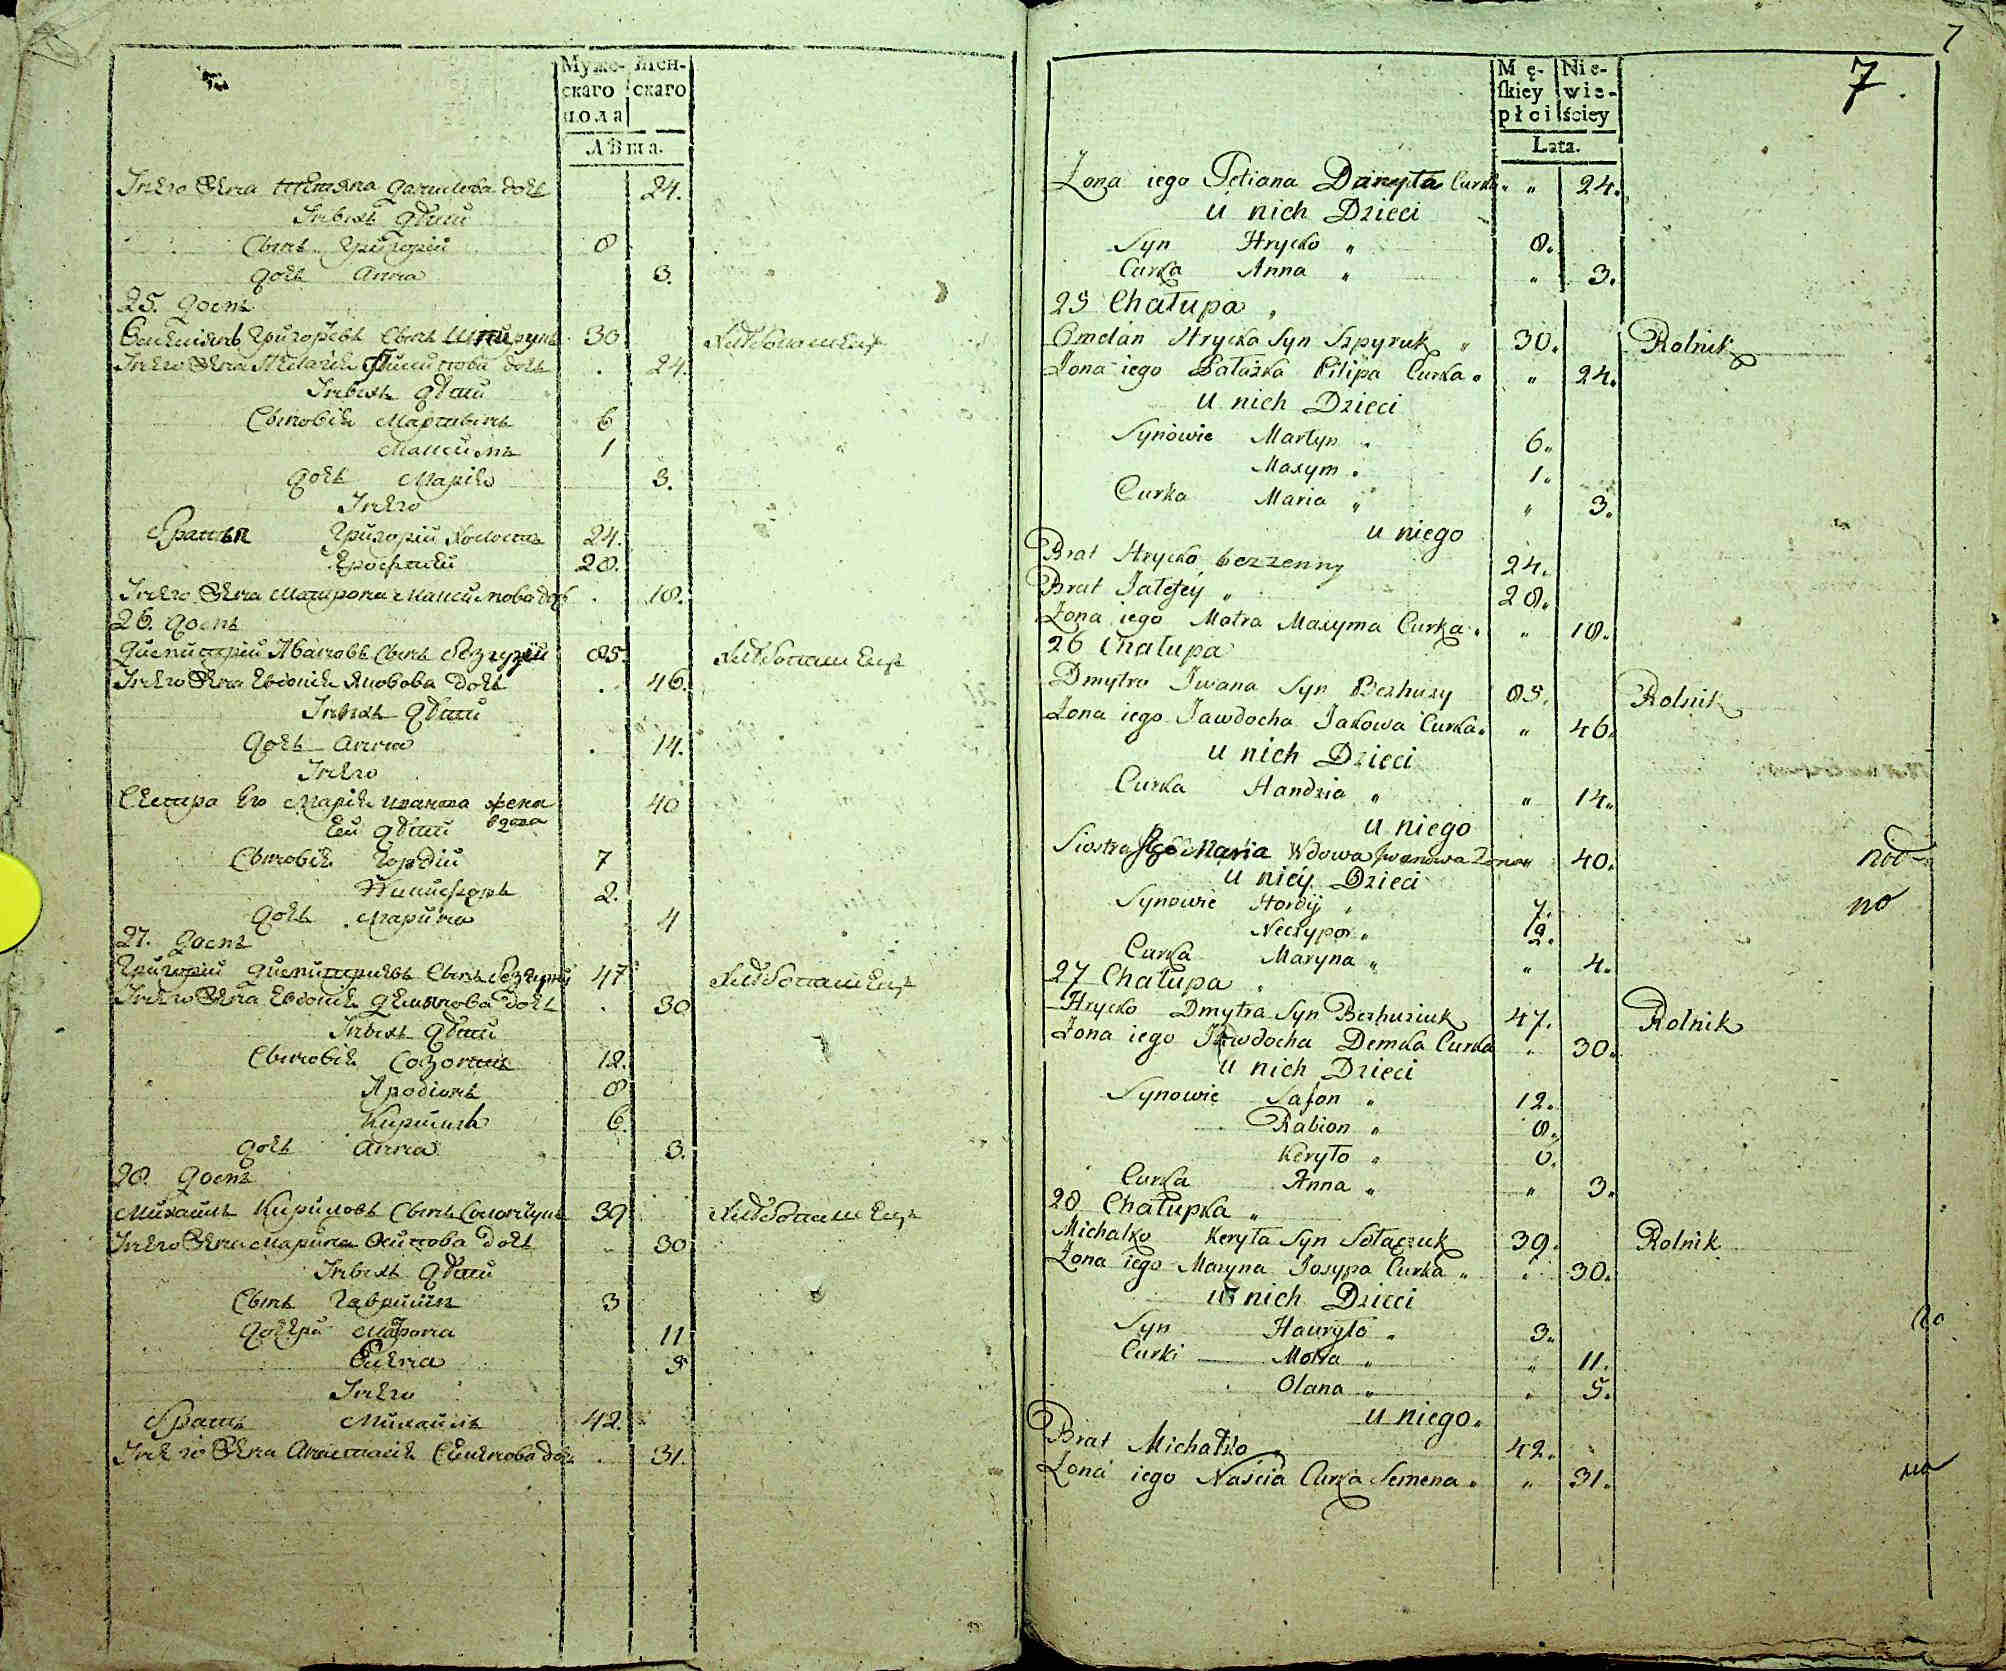 Муже- Жен-
скаго скаго
пола
Лѣта.
Унего Жена Тетяна Данилова дочь 24.
Унихъ Дѣти
Сынъ Григорій 8
Дочь Анна 3.
25. Домъ
Емельянъ Григорьевъ Сынъ 30 Хлѣбопашецъ
Унего Жена Филипова дочь 24.
Унихъ Дѣти
Сыновья Мартынъ 6
Максимъ 1
Дочь Марія 3.
Унего
Братья Григорій Холостъ 24.
Ерофтей 28.
Унего Жена Матрона Максимова доч 18.
26. Домъ
Димитрій Ивановъ Сынъ Безгузій 85. Хлѣбопашецъ
Унего Жена Евдокія Яковова дочь 46.
Унихъ Дѣти
Дочь Анна 14.
Унего
Сестра Его Марія Иванова жена 40
вдова
Еи Дѣти
Сыновья Гордій 7
Никифоръ 2.
Дочь Марина 4
27. Домъ
Григорій Димитріевъ Сынъ 47 Хлѣбопашецъ
Унего Жена Евдокія Демянова дочь 30
Унихъ Дѣти
Сыновья Созонтъ 12.
Иродіонъ 8
Кирилъ 6.
Дочь Анна 3.
28. Домъ
Михаилъ Кириловъ Сынъ 39 Хлѣбопашецъ
Унего Жена Марина Осипова дочь 30
Унихъ Дѣти
Сынъ Гавриилъ 3
Дочери Матрона 11
Елена 5
Унего
Братъ Михаилъ 42.
Унего Жена Анастасія Семенова доч. 31.
7
Mę- Nie-
skiey wie-
płci ściey
7.
Lata.
Zona iego Tetiana Daryła Curka „ 24.
u nich Dzieci
Syn Hrycko „ 8.
Curka Anna „ „ 3.
25 Chałupa „
Omelan Hrycka Syn Szpyruk „ 30. Rolnik
Zona iego Pałażka Pilipa Curka „ „ 24.
u nich Dzieci
Synowie Martyn „ 6.
Maxym „ 1.
Curka Maria „ „ 3.
u niego
Brat Hrycko bezzenny 24.
Brat Jałofey „ 28.
Zona iego Motra Maxyma Curka „ „ 18.
26 Chałupa
Dmytro Jwana Syn Bezhuzy 85. Rolnik
Zona iego Jawdocha Jakowa Curka „ „ 46.
u nich Dzieci
Curka Handzia „ „ 14.
u niego
Siostra Jego Maria Wdowa Jwanowa Zona „ 40.
u niey Dzieci
Synowie Hordij „ 7. no
Neczypor „ 2.
Curka Maryna „ „ 4.
27 Chałupa „
Hrycko Dmytra Syn Bezhuziuk 47. Rolnik
Zona iego Jawdocha Demka Curka „ 30.
u nich Dzieci
Synowie Safon „ 12.
Rabion „ 8.
Keryło „ 6.
Curka Anna „ „ 3.
28 Chałupka „
Michałko Keryła Syn Sołaczuk 39. Rolnik
Zona iego Maryna Josypa Curka „ „ 30.
u nich Dzieci
Syn Hauryło „ 3. no
Curki Motra „ „ 11.
Olana „ „ 5.
u niego „
Brat Michałko „ 42.
Zona iego Naścia Curka Semena „ „ 31. no